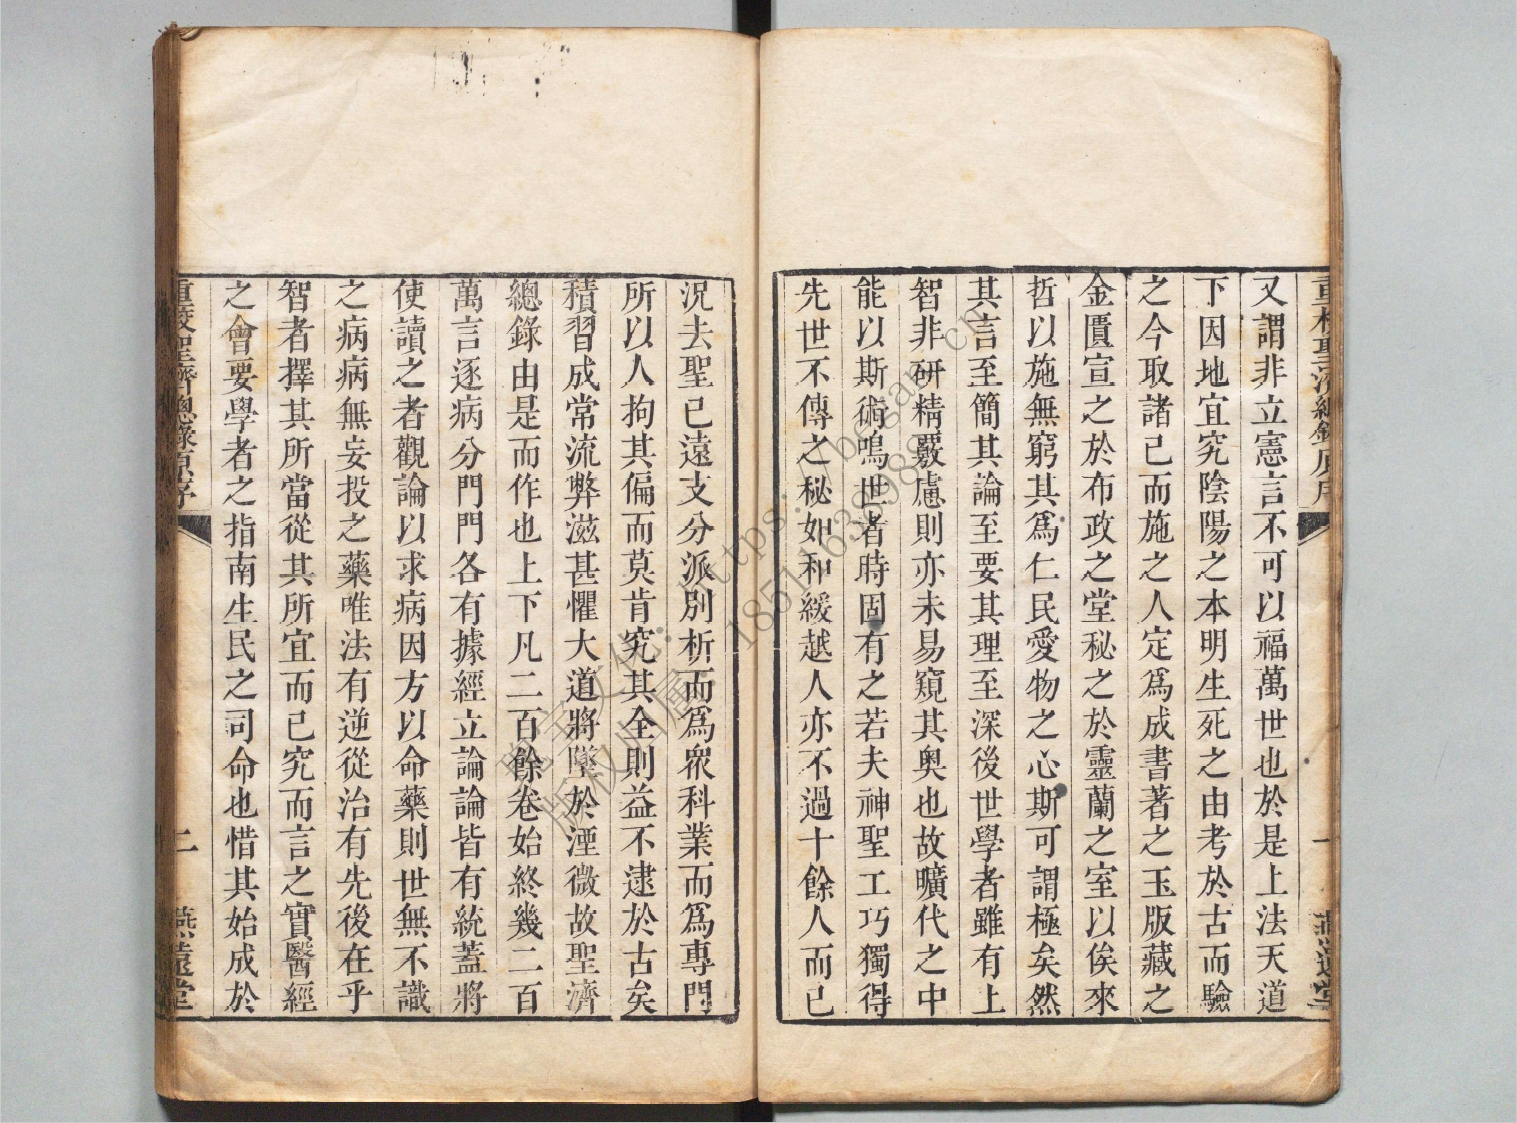 重校聖濟總錄原序
一
燕遠堂
又謂非立憲言不可以福萬世也於是上法天道
下因地宜究陰陽之本明生死之由考於古而驗
之今取諸己而施之人定爲成書著之玉版藏之
金匱宣之於布政之堂秘之於靈蘭之室以俟來
哲以施無窮其爲仁民愛物之心斯可謂極矣然
其言至簡其論至要其理至深後世學者雖有上
智非研精覈慮則亦未易窺其奥也故曠代之中
能以斯術鳴世者時固有之若夫神聖工巧獨得
先世不傳之秘如和緩越人亦不過十餘人而已
況去聖已遠支分派別析而爲衆科業而爲專門
所以人拘其偏而莫肯究其全則益不逮於古矣
積習成常流弊滋甚懼大道將墜於湮微故聖濟
總錄由是而作也上下凡二百餘卷始終幾二百
萬言逐病分門門各有據經立論論皆有統蓋將
使讀之者觀論以求病因方以命藥則世無不識
之病病無妄投之藥唯法有逆從治有先後在乎
智者擇其所當從其所宜而已究而言之實醫經
之會要學者之指南生民之司命也惜其始成於
重校聖濟總錄原序
二
燕遠堂
https://began.cn
18511636989
版权归属: